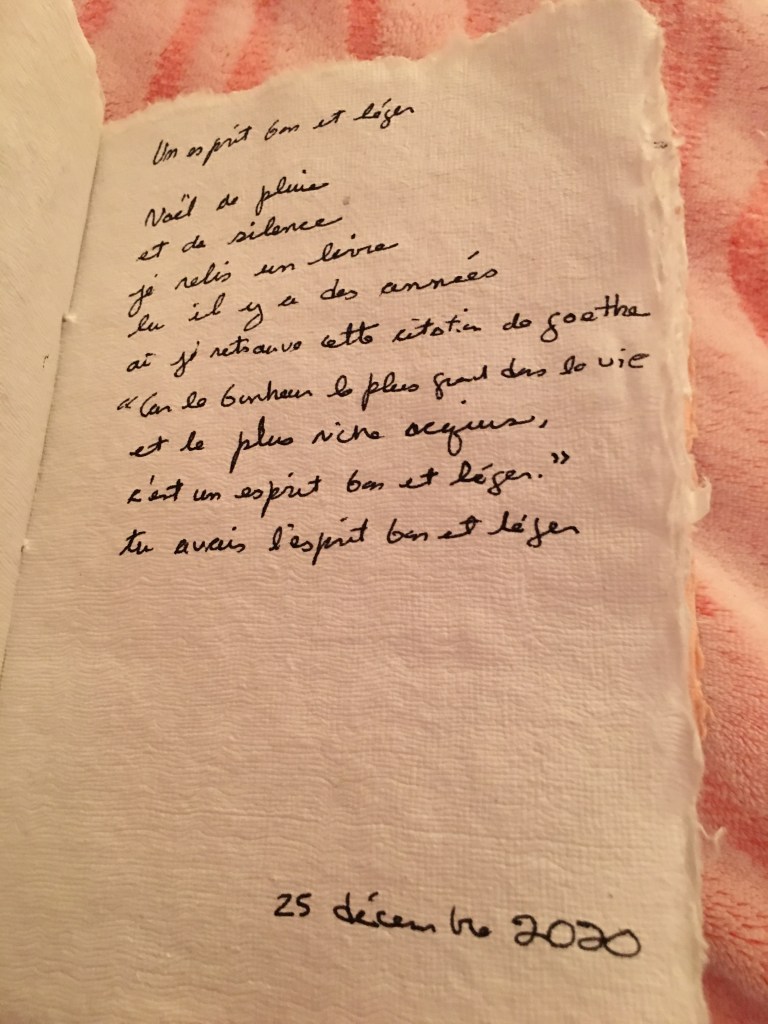 Un esprit bon et léger
Noël de pluie
et de silence
je relis un livre
lu il y a des années
où je retrouve cette citation de goethe
"Car le bonheur le plus grand dans la vie
et le plus riche acquis,
c'est un esprit bon et léger."
tu avais l'esprit bon et léger
25 décembre 2020